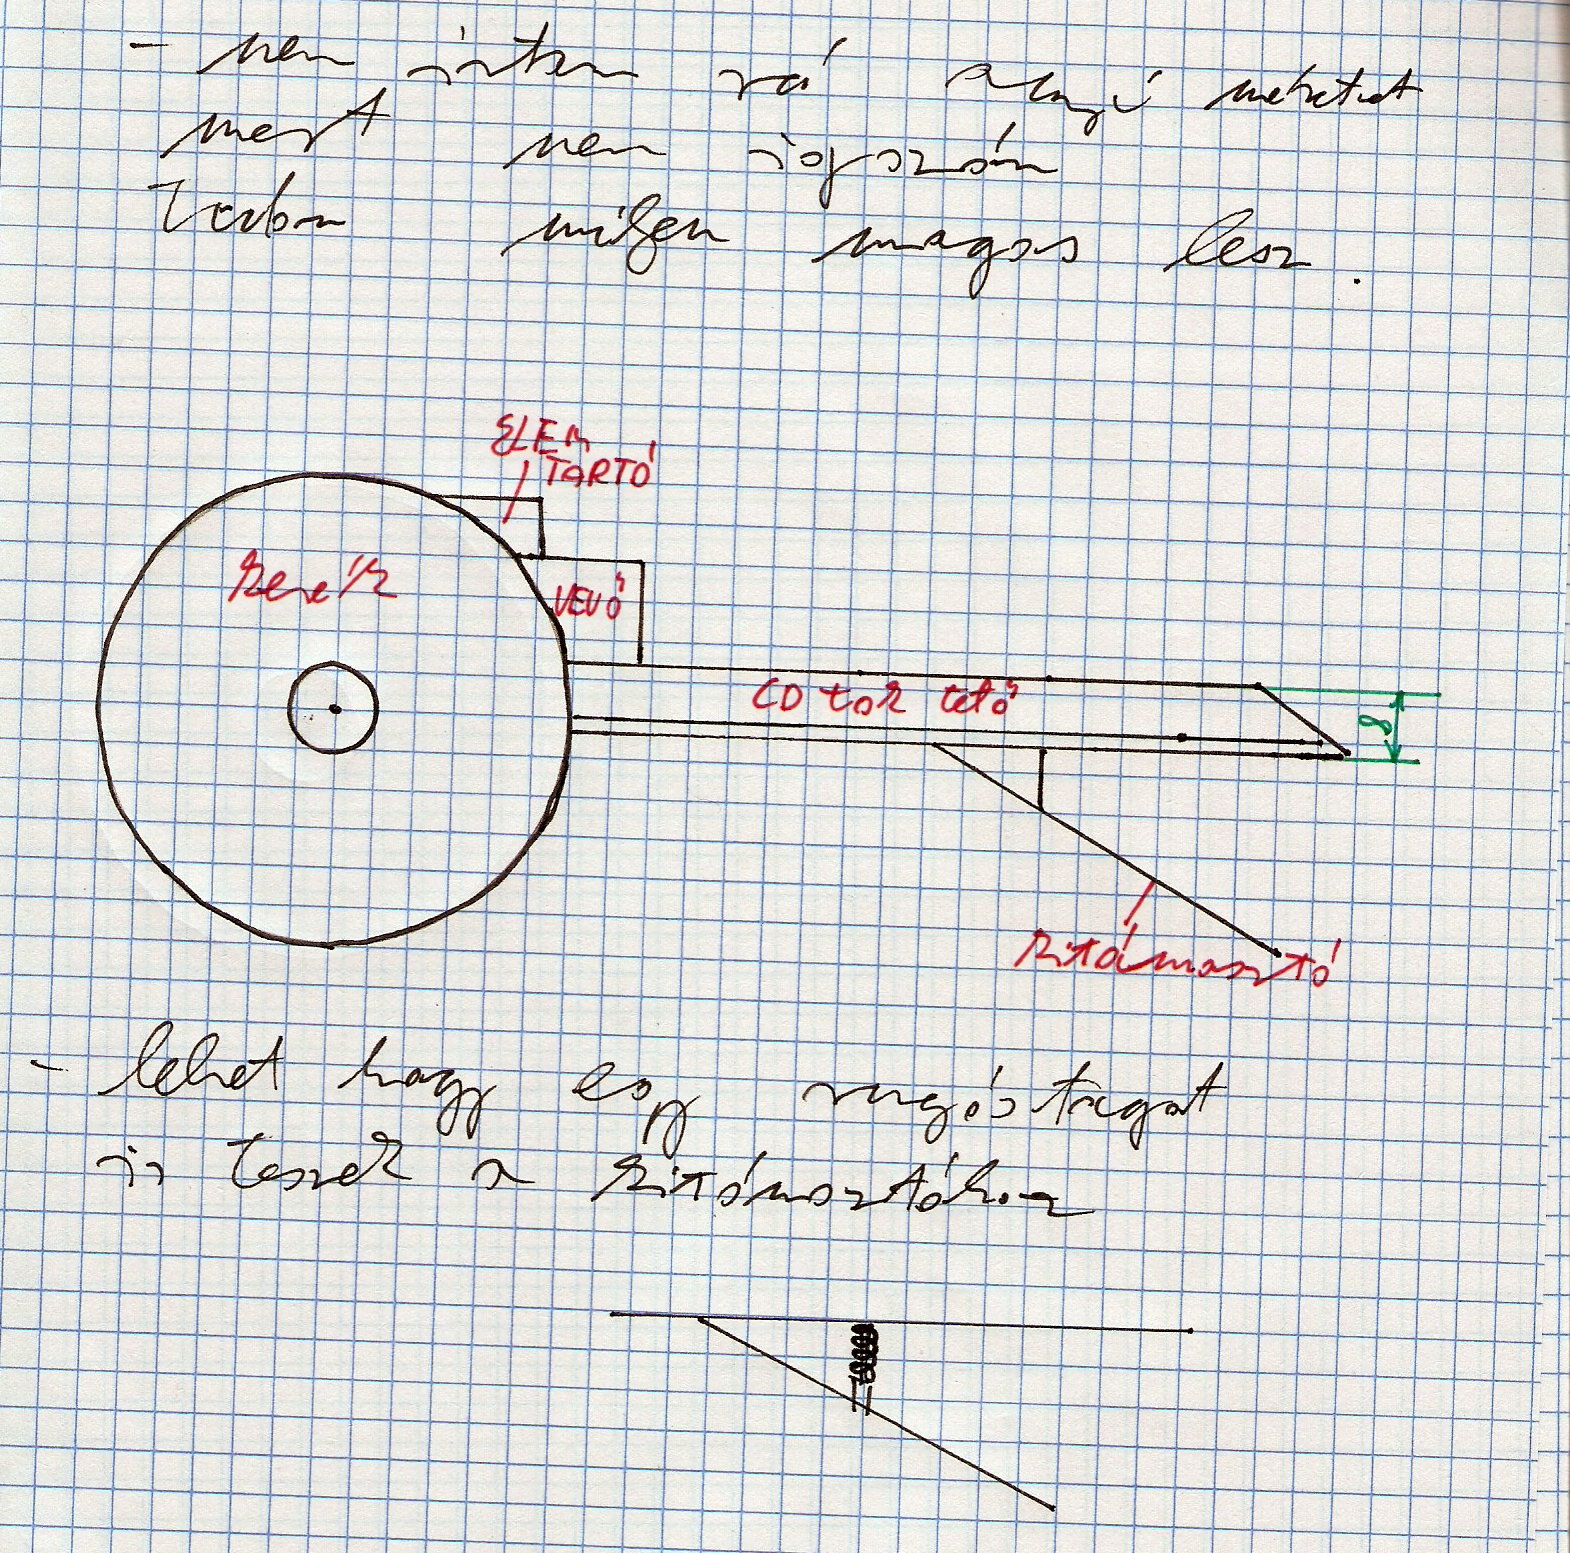 - nem irtam rá annyi méretet
mert nem igazán
tudom milyen magas lesz.
ELEM
TARTÓ
kerék
VEVŐ
CD tok tető
8
kitámasztó
- lehet hogy egy rugós tagot
is teszek a kitámasztóhoz